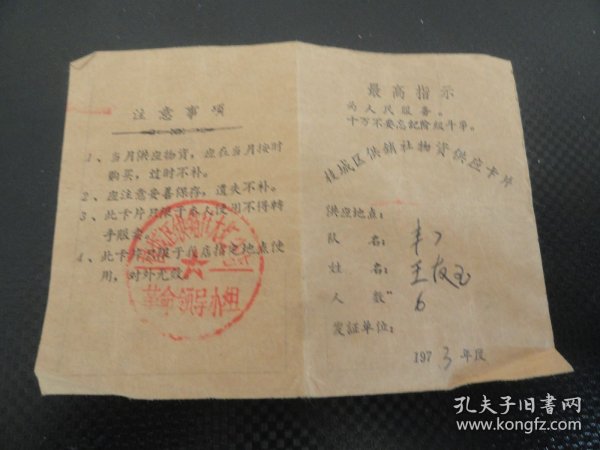 注意事项
1、当月供应物资，应在当月按时
购买，过时不补。
2、应注意妥善保存，遗失不补。
3、此卡片只限于本人使用不得转
手贩卖。
4、此卡片只限于我店指定地点使
用，对外无效。
革命领导小组
最高指示
为人民服务。
千万不要忘记阶级斗争。
桂城区供销社物资供应卡片
供应地点：
队 名：丰
姓 名：王友玉
人 数" 6
发证单位：
1973年度
孔夫子旧书网
www.kongfz.com